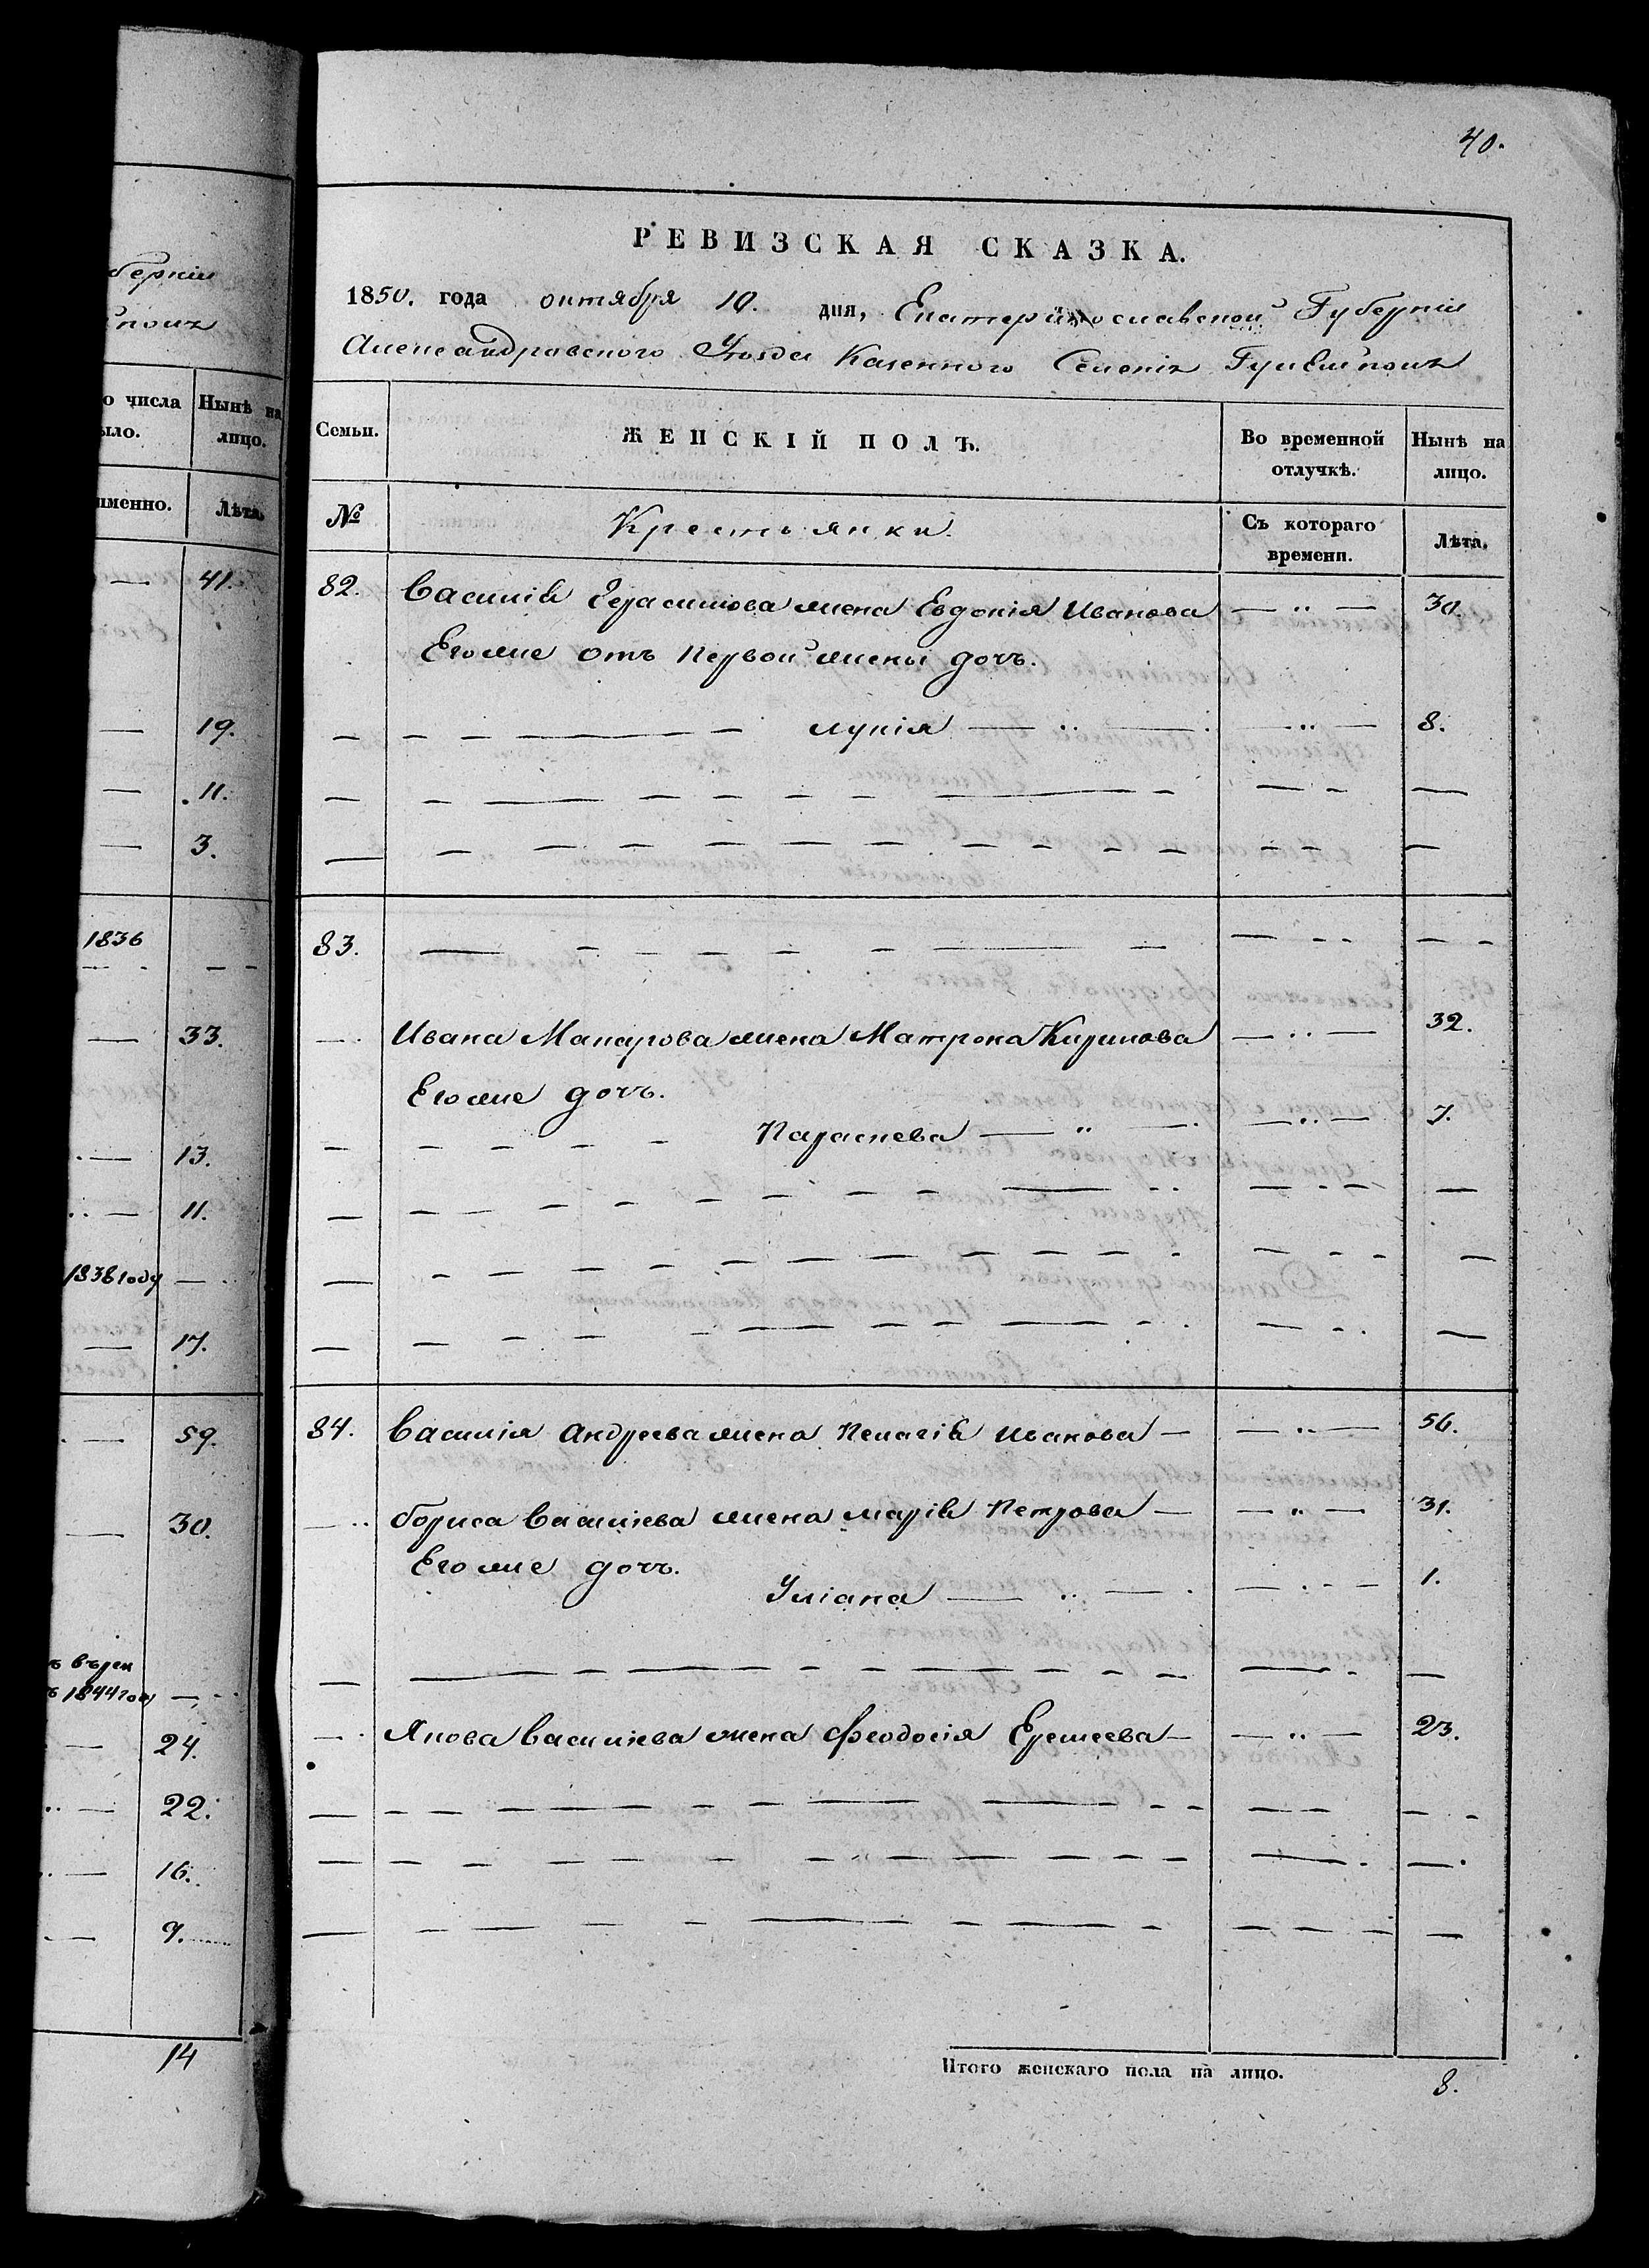 40.
РЕВИЗСКАЯ СКАЗКА.
1850. года октября 10. дня, Екатеринославской Губерніи
Александровского Уезда Казенного Селенія
берніи
о числа Нынѣ на
ыло. лицо.
именно. Лѣта.
— 41.
— 19.
— 11.
— 3.
1836
— 33.
— 13.
— 11.
1838 году —
— 17.
— 59.
— 30.
1844 год
— 24.
— 22.
— 16.
— 9.
14
Семьи. ЖЕНСКІЙ ПОЛЪ. Во временной отлучкѣ. Нынѣ на лицо.
№ Крестьянки. Съ котораго времени. Лѣта.
82. Василія Герасимова жена Евдокія Иванова — " — 30.
Его же отъ первой жены дочь.
Лукія — " — 8.
83.
Ивана Макарова жена Матрона Кирилова — " — 32.
Его же дочь.
Параскева — " — 7.
84. Василія Андреева жена Пелагія Иванова — " — 56.
Бориса Васильева жена Марія Петрова — " — 31.
Его же дочь.
Уліана — " — 1.
Якова Васильева жена Феодосія Еремеева — " — 23.
Итого женскаго пола на лицо. 8.